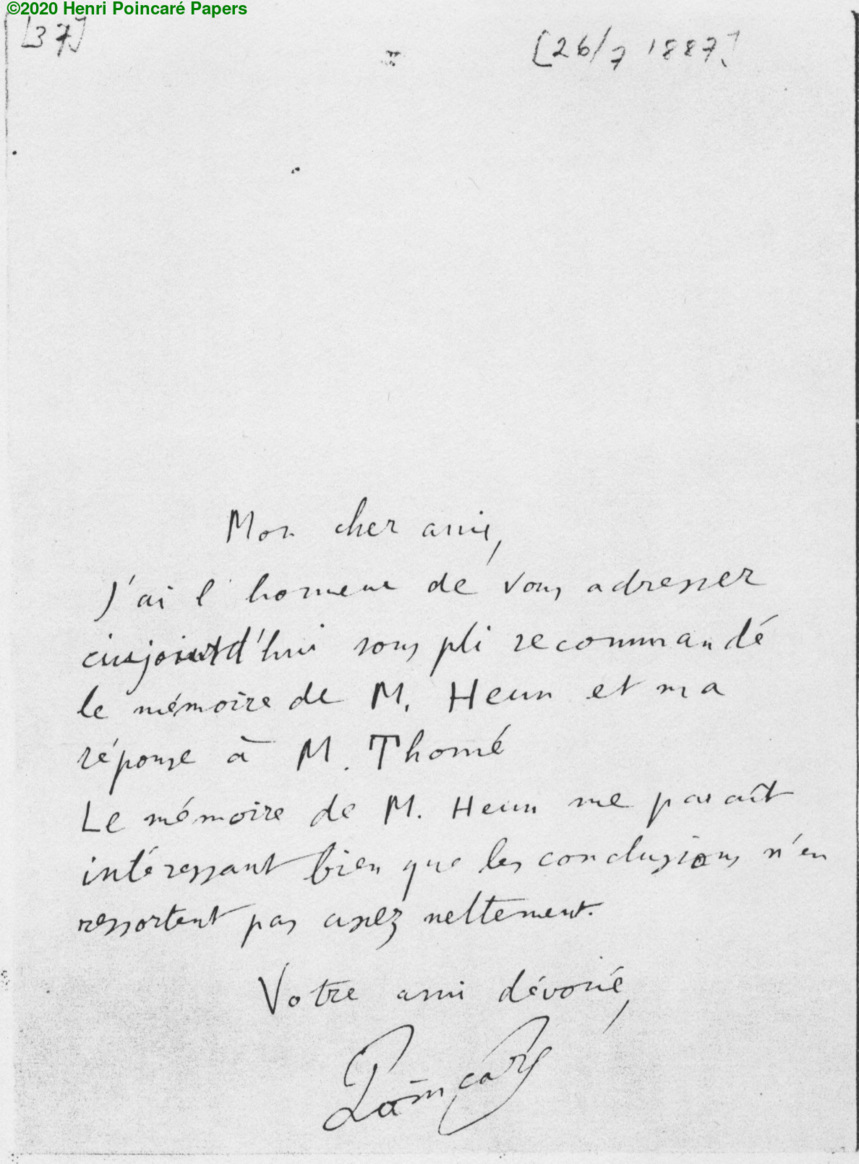 ©2020 Henri Poincaré Papers
[37] [26/7 1887]
Mon cher ami,
J'ai l'honneur de vous adresser
aujourd'hui sous pli recommandé
le mémoire de M. Heun et ma
réponse à M. Thomé
Le mémoire de M. Heun me parait
intéressant bien que les conclusions n'en
ressortent pas assez nettement.
Votre ami dévoué,
Poincaré